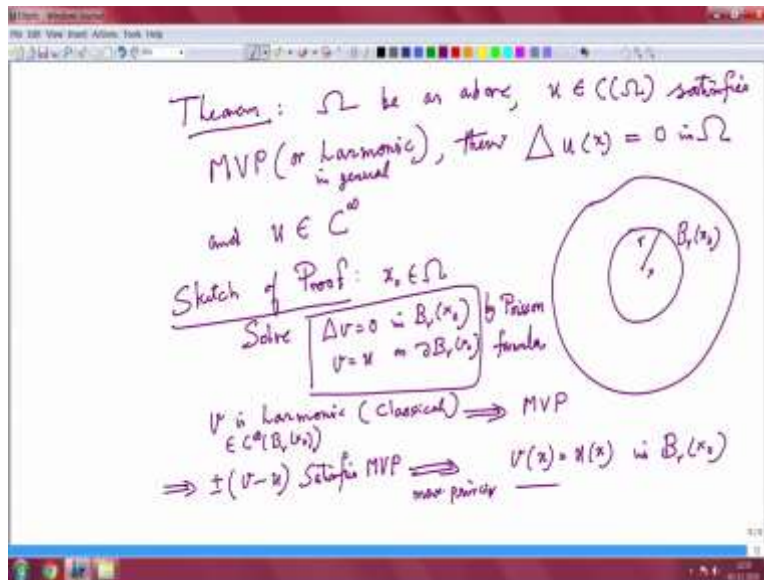 File Edit View Insert Actions Tools Help
Theorem : Ω be as above, u ∈ C(Ω) satisfies
MVP (or harmonic in general), then Δu(x) = 0 in Ω
and u ∈ C^∞
Sketch of Proof: x₀ ∈ Ω
B_r(x₀)
r
Solve Δv=0 in B_r(x₀) by Poisson
v=u on ∂B_r(x₀) formula
v is harmonic (Classical) ⟹ MVP
∈ C^∞(B_r(x₀))
⟹ ±(v-u) Satisfies MVP ⟹ v(x) = u(x) in B_r(x₀)